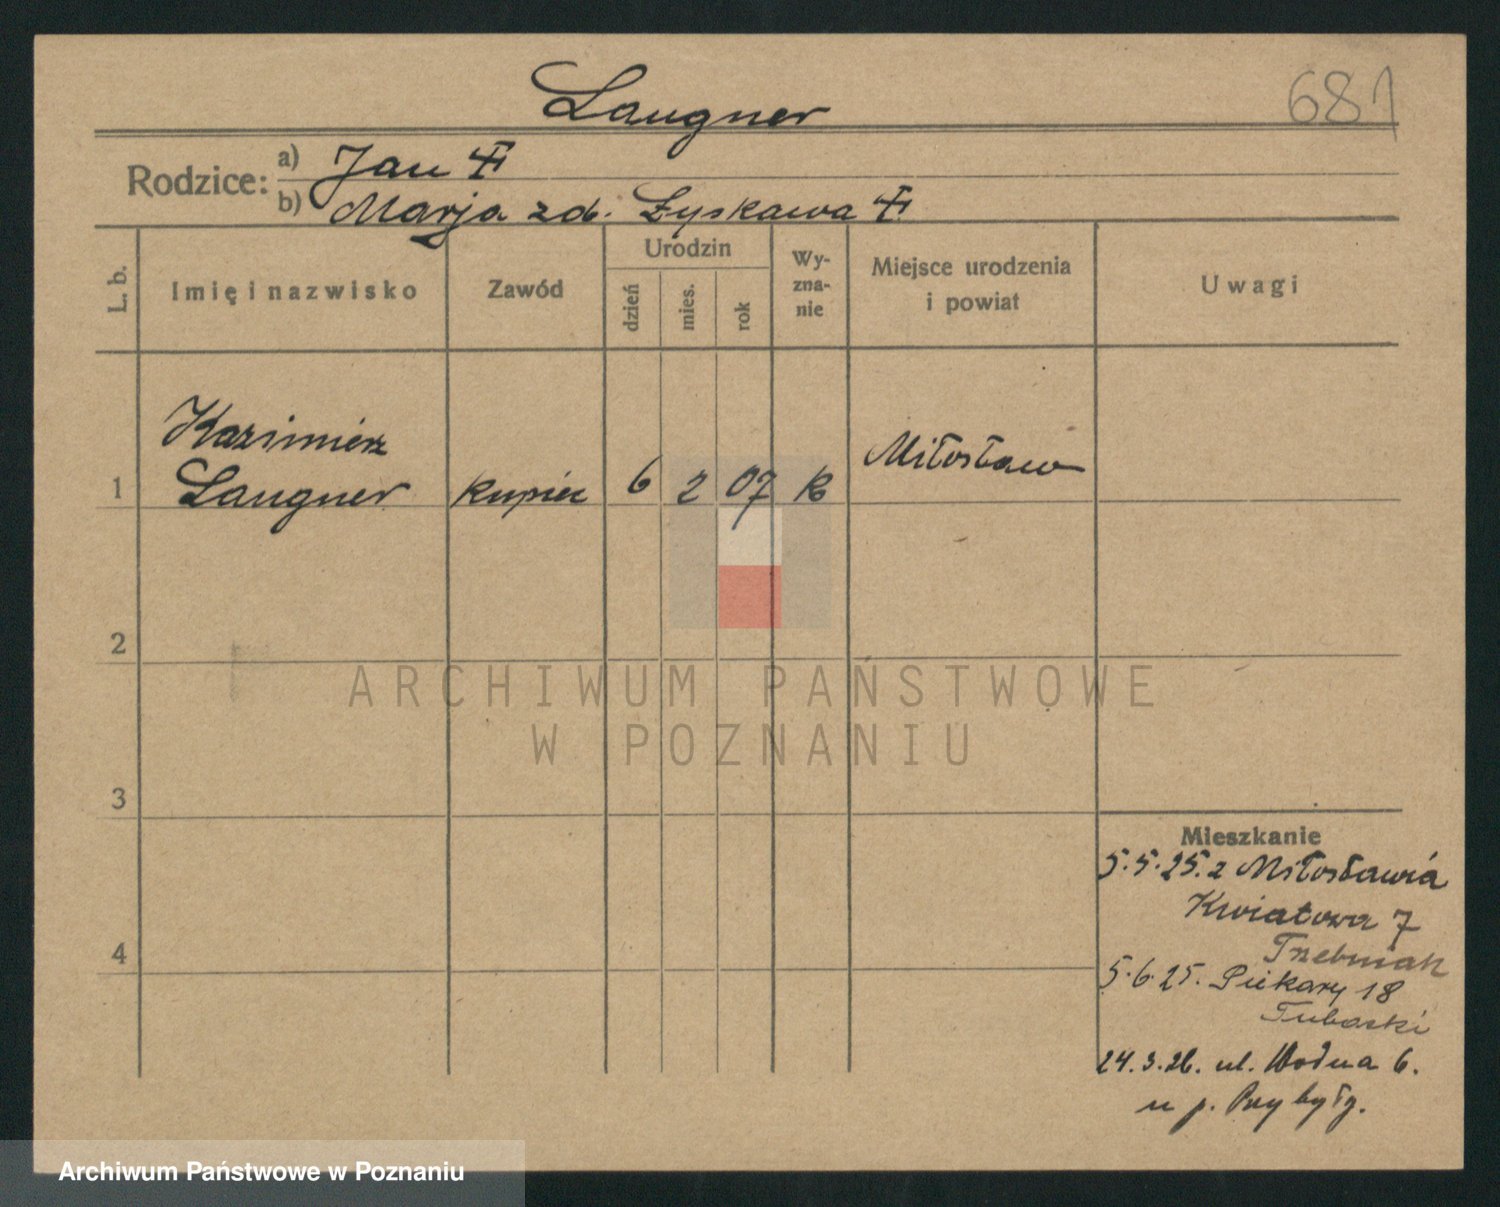 Langner
681
Rodzice: a) Jan
b) Marja zd. Łyskawa
L. b.
Imię i nazwisko
Zawód
Urodzin
dzień
mies.
rok
Wy-
zna-
nie
Miejsce urodzenia
i powiat
Uwagi
Kazimierz
1 Langner kupiec 6 2 07 k Miłosław
2
3
4
Mieszkanie
5.5.25. z Miłosławia
Kwiatowa 7
Trzebniak
5.6.25. Piekary 18
24.3.26. ul. Wodna 6.
u p. Przybyły.
ARCHIWUM PAŃSTWOWE
W POZNANIU
Archiwum Państwowe w Poznaniu